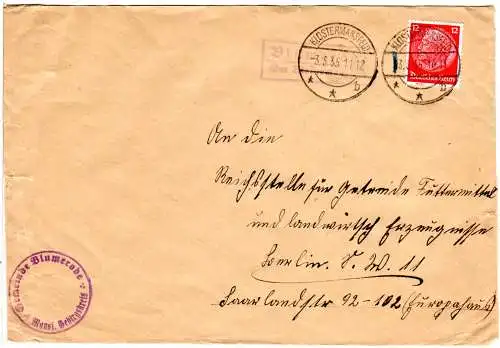 KLOSTERMANSFELD
-3.5.35.11-12
* * b
12
An die
Reichsstelle für Getreide Futtermittel
und landwirtsch Erzeugnisse
Berlin. S. W. 11
Saarlandstr 92-102 (Europahaus)
Gemeinde Blumerode
Mansf. Gebirgskreis